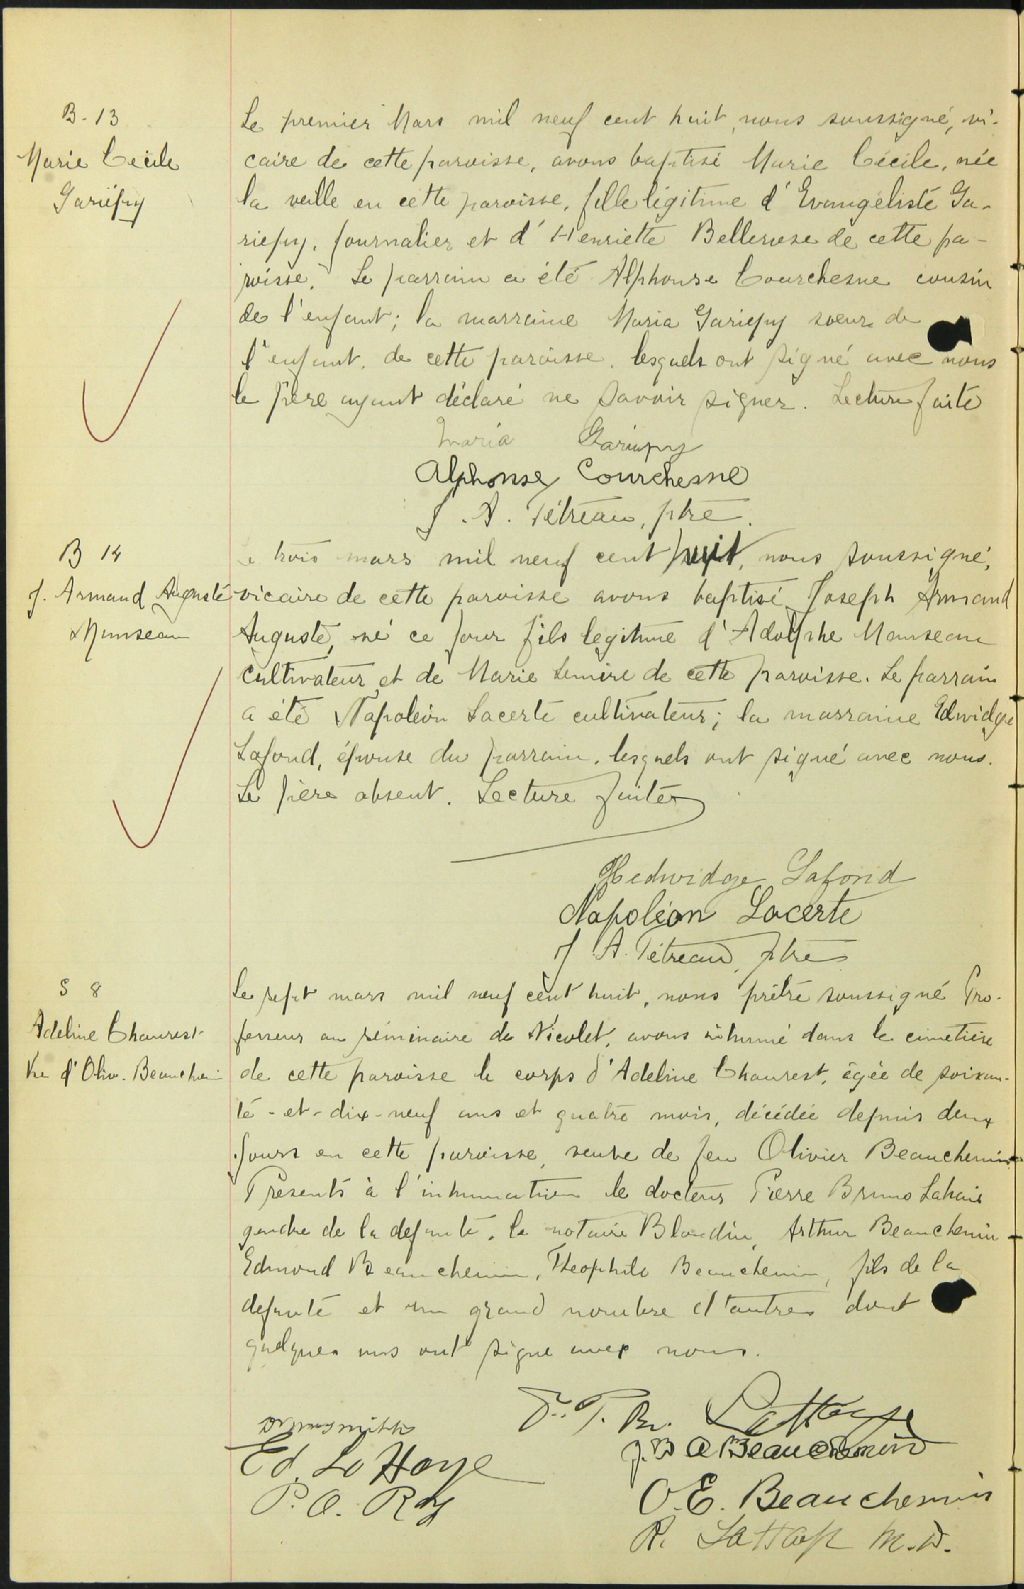 B-13
Marie Cécile
Gariépy
Le premier Mars mil neuf cent huit, nous soussigné, vi-
caire de cette paroisse, avons baptisé Marie Cécile, née
la veille en cette paroisse, fille légitime d'Evangéliste Ga-
riépy, journalier et d'Henriette Bellerose de cette pa-
roisse. Le parrain a été Alphonse Courchesne cousin
de l'enfant; la marraine Maria Gariépy soeur de
l'enfant, de cette paroisse, lesquels ont signé avec nous
le père ayant déclaré ne savoir signer. Lecture faite
Maria Gariépy
Alphonse Courchesne
J. A. Tétreau, ptre.
B 14
J. Armand Auguste
Manseau
Le trois mars mil neuf cent huit, nous soussigné,
vicaire de cette paroisse avons baptisé Joseph Armand
Auguste, né ce jour fils légitime d'Adolphe Manseau
cultivateur et de Marie Lemire de cette paroisse. Le parrain
a été Napoléon Lacerte cultivateur; la marraine Edwidge
Lafond, épouse du parrain, lesquels ont signé avec nous.
Le père absent. Lecture faite
Hedwidge Lafond
Napoléon Lacerte
J A. Tétreau, ptre
S 8
Adeline Chaurest
Vve d'Oliv. Beauchemin
Le sept mars mil neuf cent huit, nous prêtre soussigné Pro-
fesseur au séminaire de Nicolet, avons inhumé dans le cimetière
de cette paroisse le corps d'Adeline Chaurest, âgée de soixan-
te-et-dix-neuf ans et quatre mois, décédée depuis deux
jours en cette paroisse, veuve de feu Olivier Beauchemin
Présents à l'inhumation le docteur Pierre Bruno Lahaie
gendre de la défunte, le notaire Blondin, Arthur Beauchemin
Edmond Beauchemin, Théophile Beauchemin, fils de la
defunte et un grand nombre d'autres dont
quelques uns ont signé avec nous.
Lattaye
Ed. La Haye
J. B A Beauchemin
P. O. Roy
O. E. Beauchemin
R. M.D.